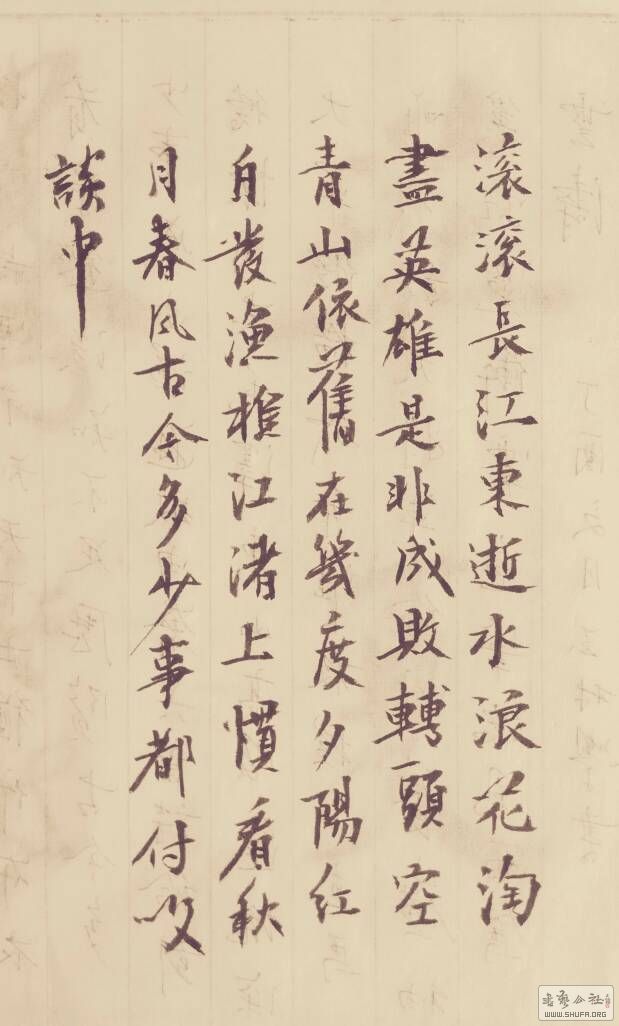 滚滚長江東逝水浪花淘
盡英雄是非成敗轉頭空
青山依舊在幾度夕陽红
白发漁樵江渚上慣看秋
月春风古今多少事都付咲
談中
書藝公社
WWW.SHUFA.ORG